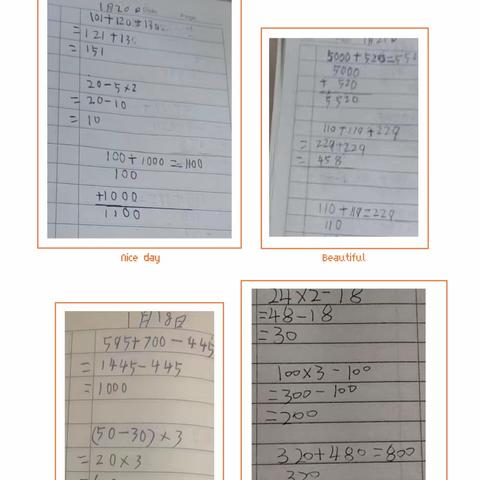 1月20日
=151
20-5×2
=20-10
=10
100+1000=1100
100
+1000
1100
Nice day
5000
+ 520
5520
110+119+229
=229+229
=458
110+119=229
110
Beautiful
1月18日
595+700-445
=1445-445
=1000
(50-30)×3
=20×3
24×2-18
=48-18
=30
100×3-100
=300-100
=200
320+480=800
320